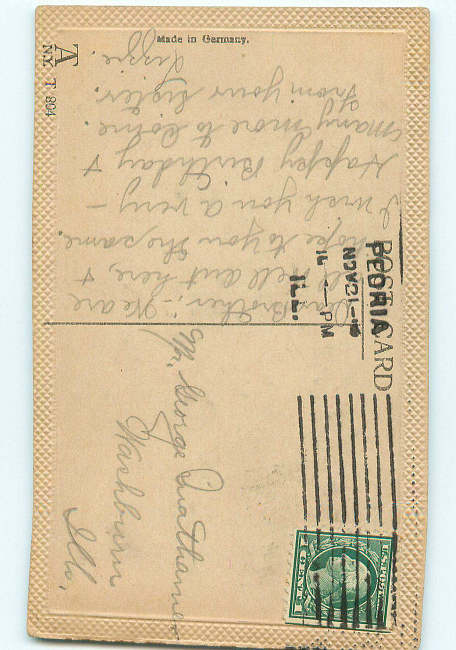 Made in Germany.
A
N.Y. T 804
POST CARD
PEORIA
NOV 21
PM
ILL.
Dear Brother,:- We are
all well out here, &
hope to you the same.
I wish you a very —
Happy Birthday &
Many more to come.
From your sister.
Lizzie.
Mr. George
Washburn
Ills.